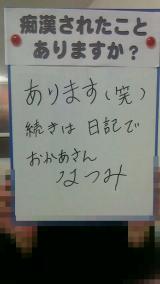 痴漢されたこと
ありますか？
あります(笑)
続きは日記で
おかあさん
なつみ